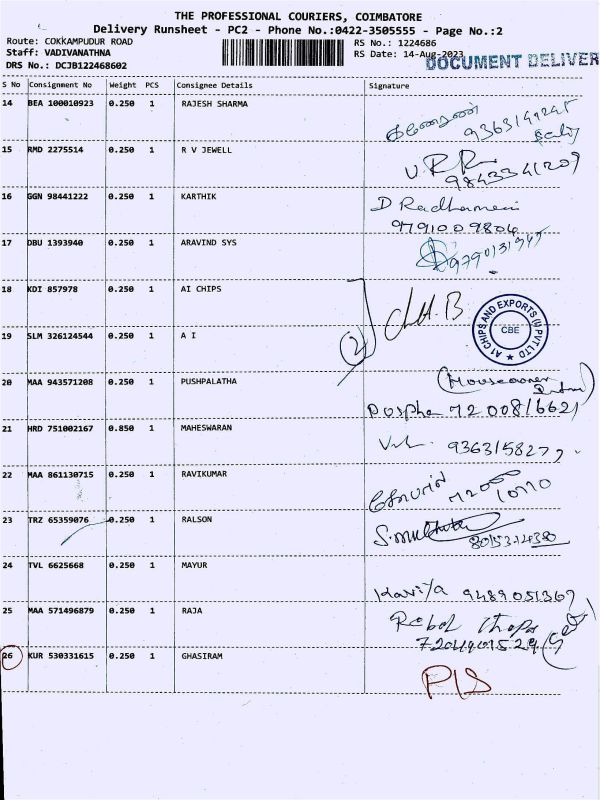 THE PROFESSIONAL COURIERS, COIMBATORE
Delivery Runsheet - PC2 - Phone No.:0422-3505555 - Page No.:2
Route: COKKAMPUDUR ROAD RS No.: 1224686
Staff: VADIVANATHNA RS Date: 14-Aug-2023
DRS No.: DCJB122468602 DOCUMENT DELIVER
S No Consignment No Weight PCS Consignee Details Signature
14 BEA 100010923 0.250 1 RAJESH SHARMA
15 RMD 2275514 0.250 1 R V JEWELL
9843341209
16 GGN 98441222 0.250 1 KARTHIK D Radhamani
9791009804
17 DBU 1393940 0.250 1 ARAVIND SYS
18 KDI 857978 0.250 1 AI CHIPS
A1 CHIPS AND EXPORTS (I) PVT LTD
CBE
19 SLM 326124544 0.250 1 A I
2
20 MAA 943571208 0.250 1 PUSHPALATHA
21 HRD 751002167 0.850 1 MAHESWARAN
22 MAA 861130715 0.250 1 RAVIKUMAR
23 TRZ 65359076 0.250 1 RALSON
24 TVL 6625668 0.250 1 MAYUR
Kaviya 9489051369
25 MAA 571496879 0.250 1 RAJA
26 KUR 530331615 0.250 1 GHASIRAM
P/S